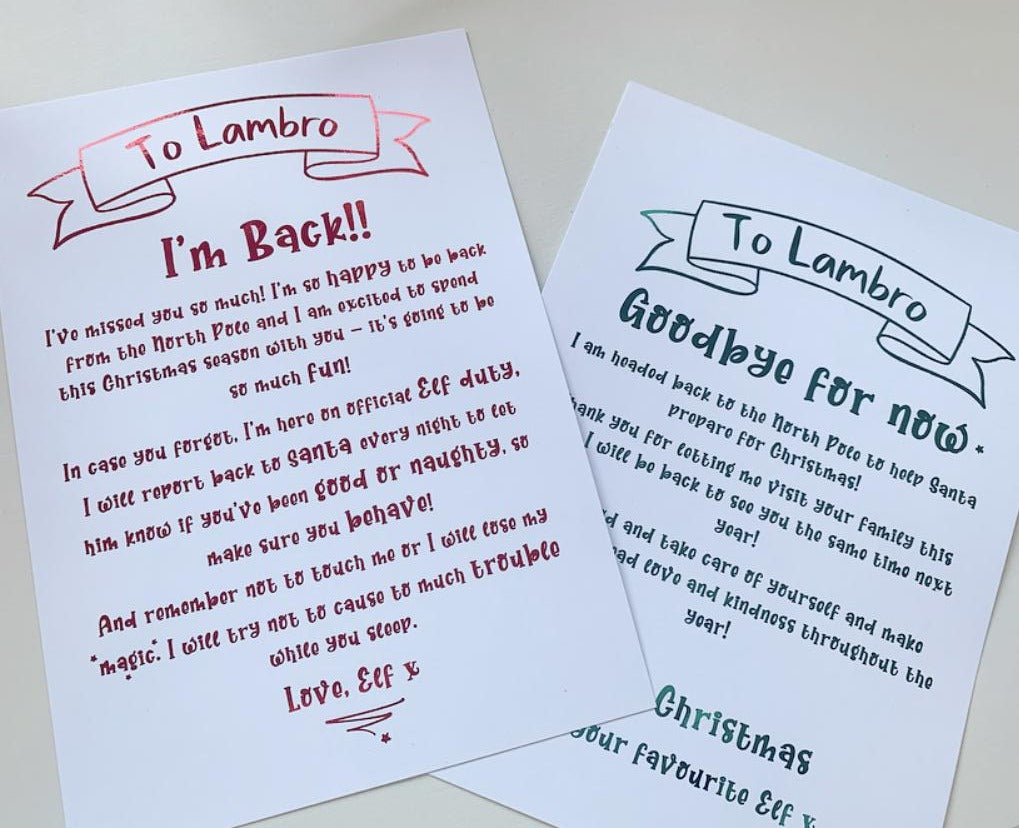 To Lambro
I'm Back!!
I've missed you so much! I'm so happy to be back
from the North Pole and I am excited to spend
this Christmas season with you – it's going to be
so much fun!
In case you forgot, I'm here on official Elf duty,
I will report back to Santa every night to let
him know if you've been good or naughty, so
make sure you behave!
And remember not to touch me or I will lose my
magic. I will try not to cause to much trouble
while you sleep.
Love, Elf x
To Lambro
Goodbye for now
I am headed back to the North Pole to help Santa
prepare for Christmas!
hank you for letting me visit your family this
I will be back to see you the same time next
year!
d and take care of yourself and make
ad love and kindness throughout the
year!
Christmas
your favourite Elf x